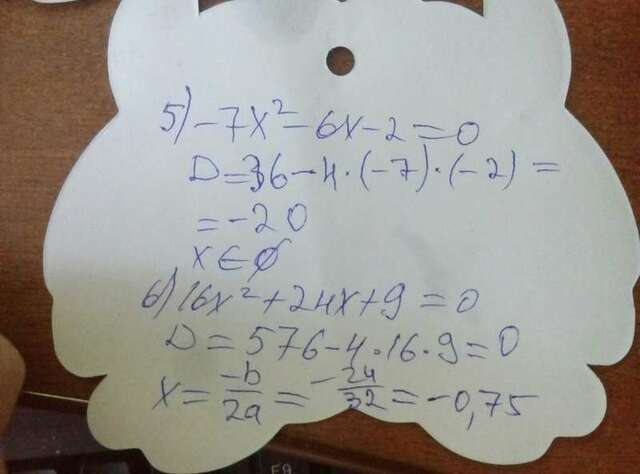 5) -7x² - 6x - 2 = 0
D = 36 - 4 · (-7) · (-2) =
= -20
x ∈ ∅
6) 16x² + 24x + 9 = 0
D = 576 - 4 · 16 · 9 = 0
x = -b/2a = -24/32 = -0,75